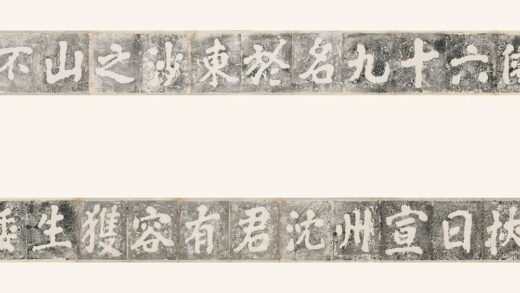 倭六十九名於東沙之山不
挾日宣州沈君有容獲生倭